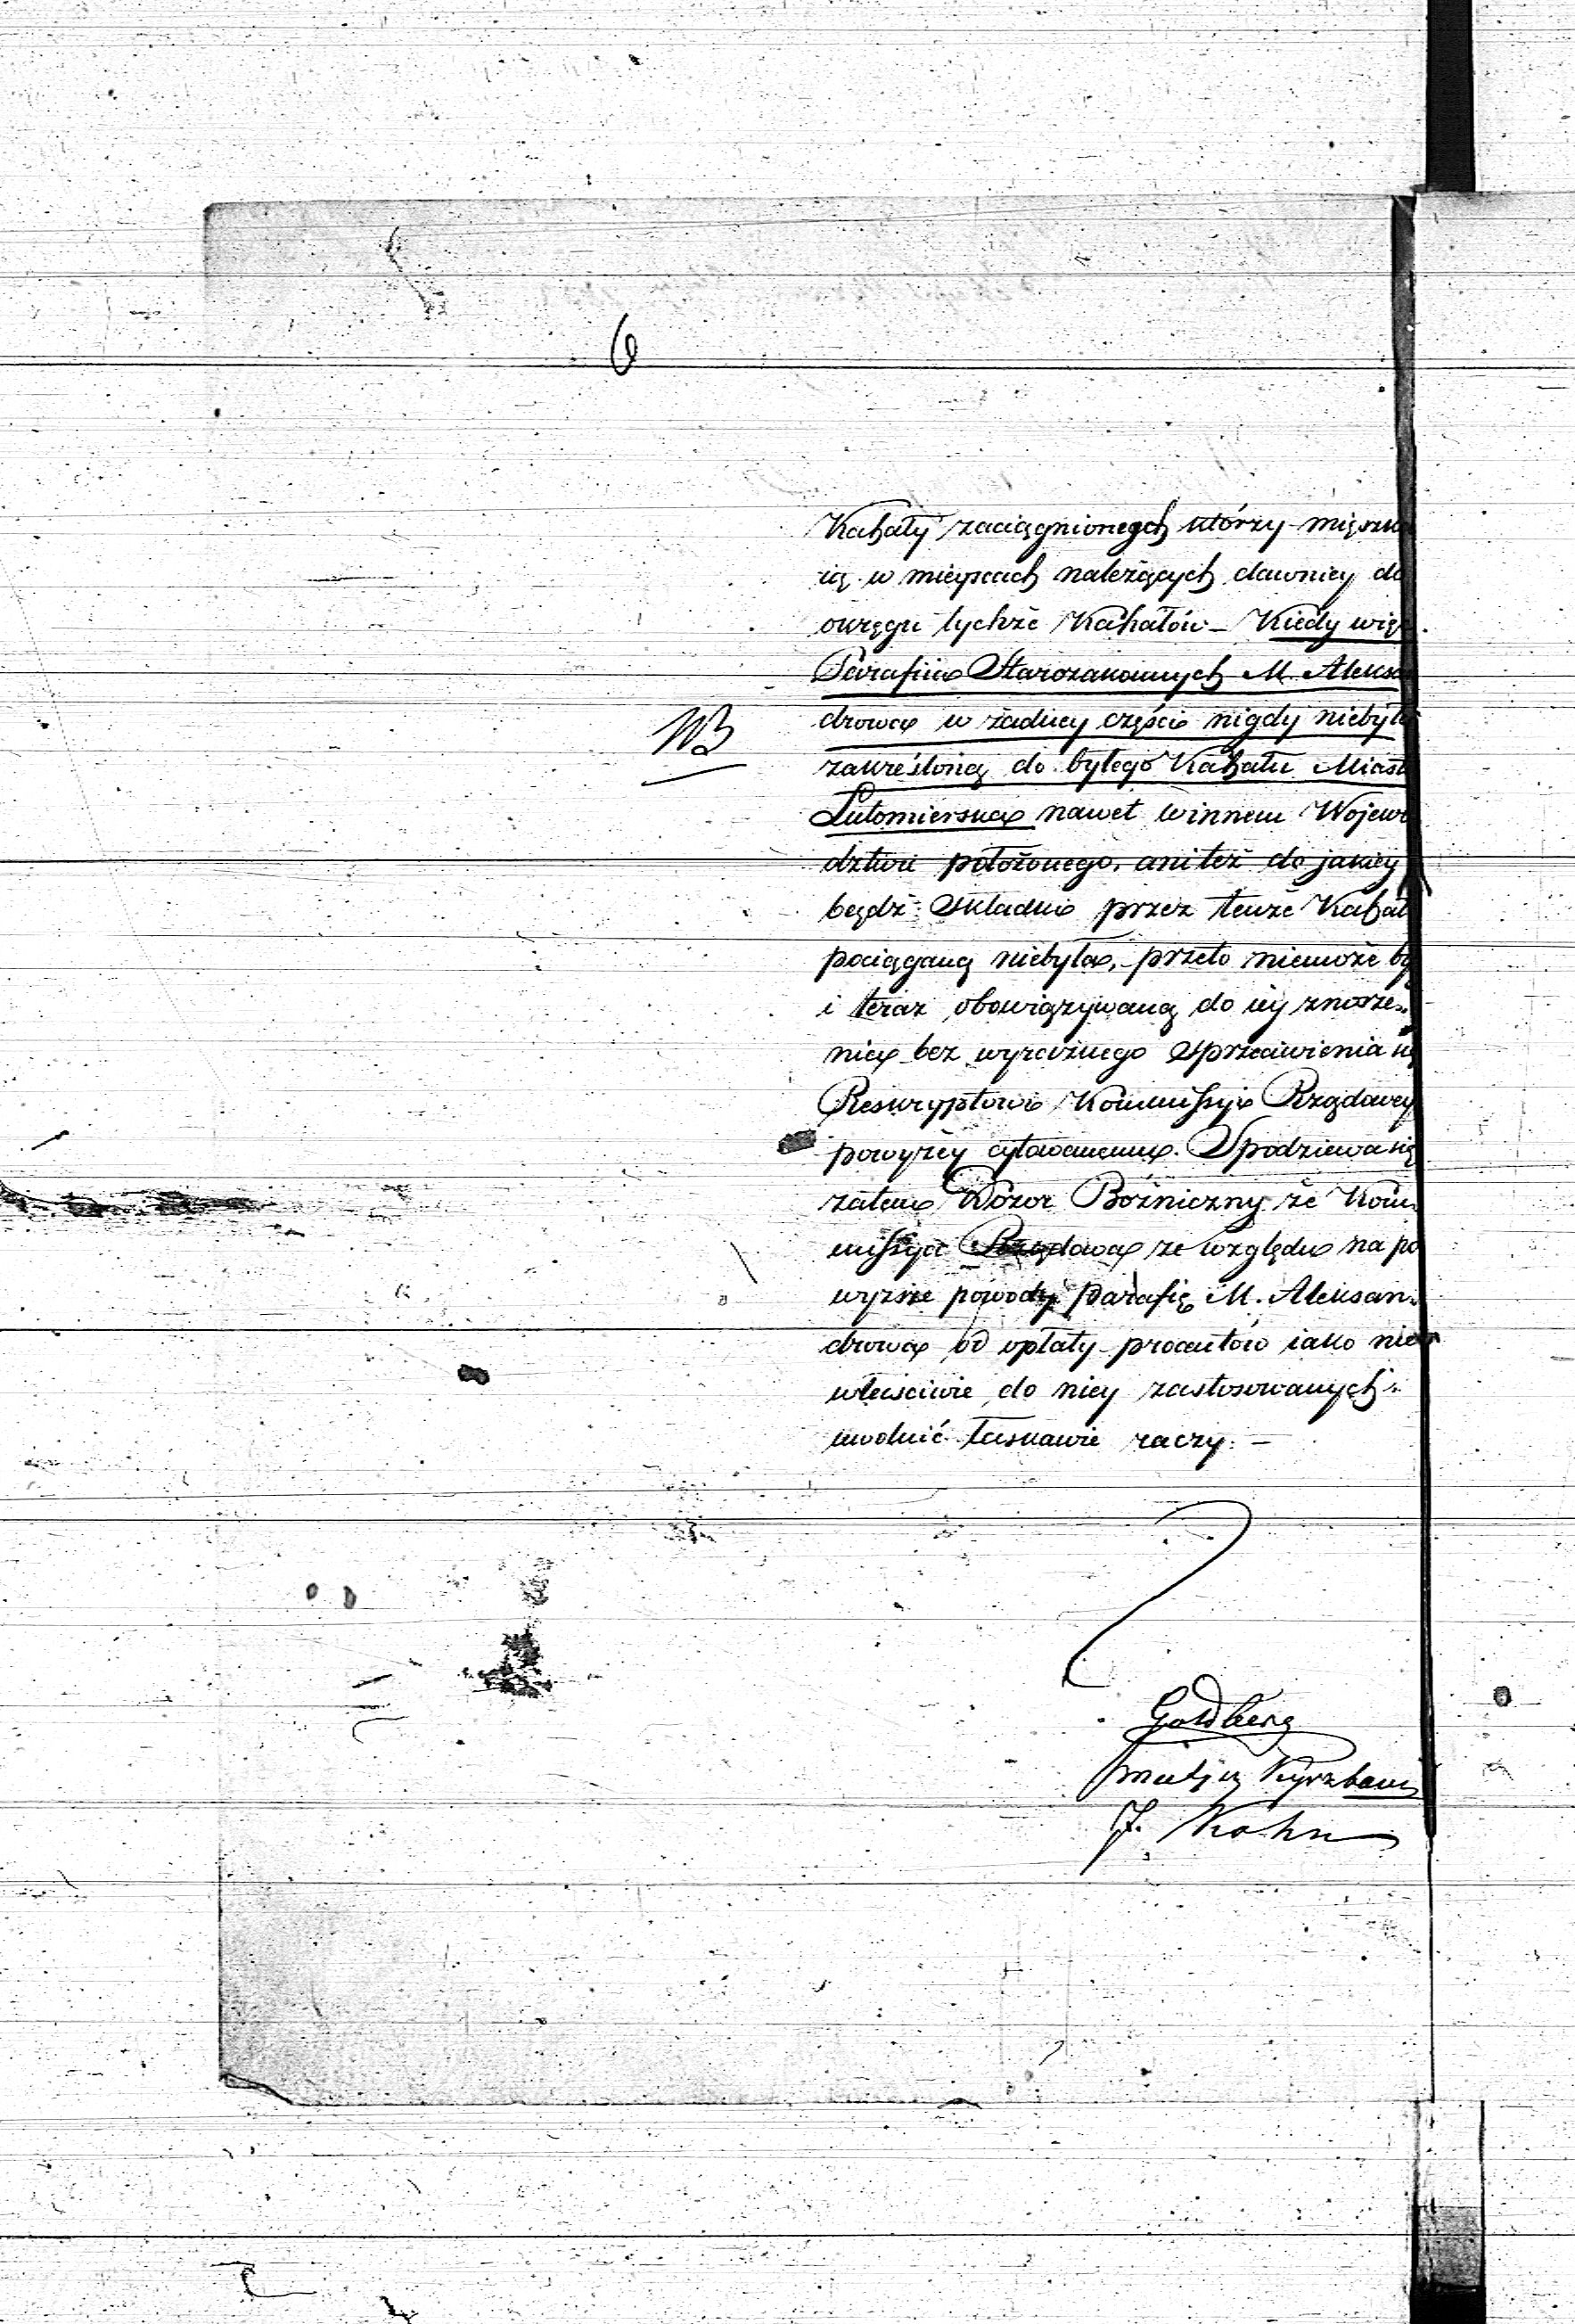 6
Kahały zaciągnionych którzy mięszka
ią w mieyscach należących dawniey do
okręgu tychże Kahałów – Kiedy więc
Parafiia Starozakonnych M. Aleksan
NB
drowa w żadney części nigdy niebyła
zakreśloną do byłego Kahału Miasta
Lutomierska nawet winnem Wojewo
dztwie położonego, ani też do jakiey
bądź składki przez tenże Kahał
pociąganą niebyła, przeto niemoże by
i teraz obowiązywaną do iey znosze„
nia bez wyraźnego sprzeciwienia się
Reskryptowi Kommissyi Rządowey
powyżey cytowanemu. Spodziewa się
zatem Dozor Bóżniczny że Kom„
missya Rządowa ze względu na po
wyższe powody parafię M. Aleksan„
drowa od opłaty procentów iako nie„
właściwie do niey zastosowanych
uwolnić łaskawie raczy. –
Goldberg
J. Kohn